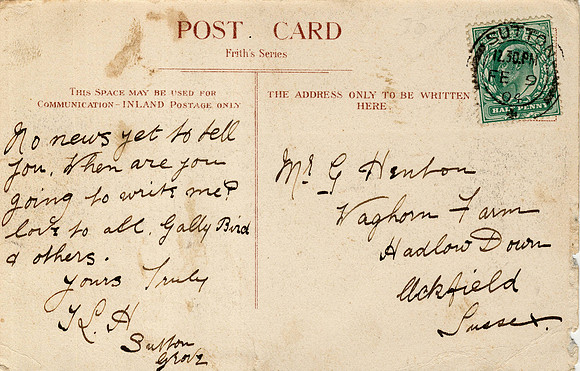 POST CARD
Frith's Series
THIS SPACE MAY BE USED FOR
COMMUNICATION–INLAND POSTAGE ONLY
THE ADDRESS ONLY TO BE WRITTEN
HERE.
SUTTON
12.30.PM
FE 9
HALFPENNY
No news yet to tell
you. When are you
going to write me?
love to all, Gally Bird
& others.
Yours Truly
T.L.H
Sutton
Grove
Mr G Henton
Vaghorn Farm
Hadlow Down
Uckfield
Sussex.